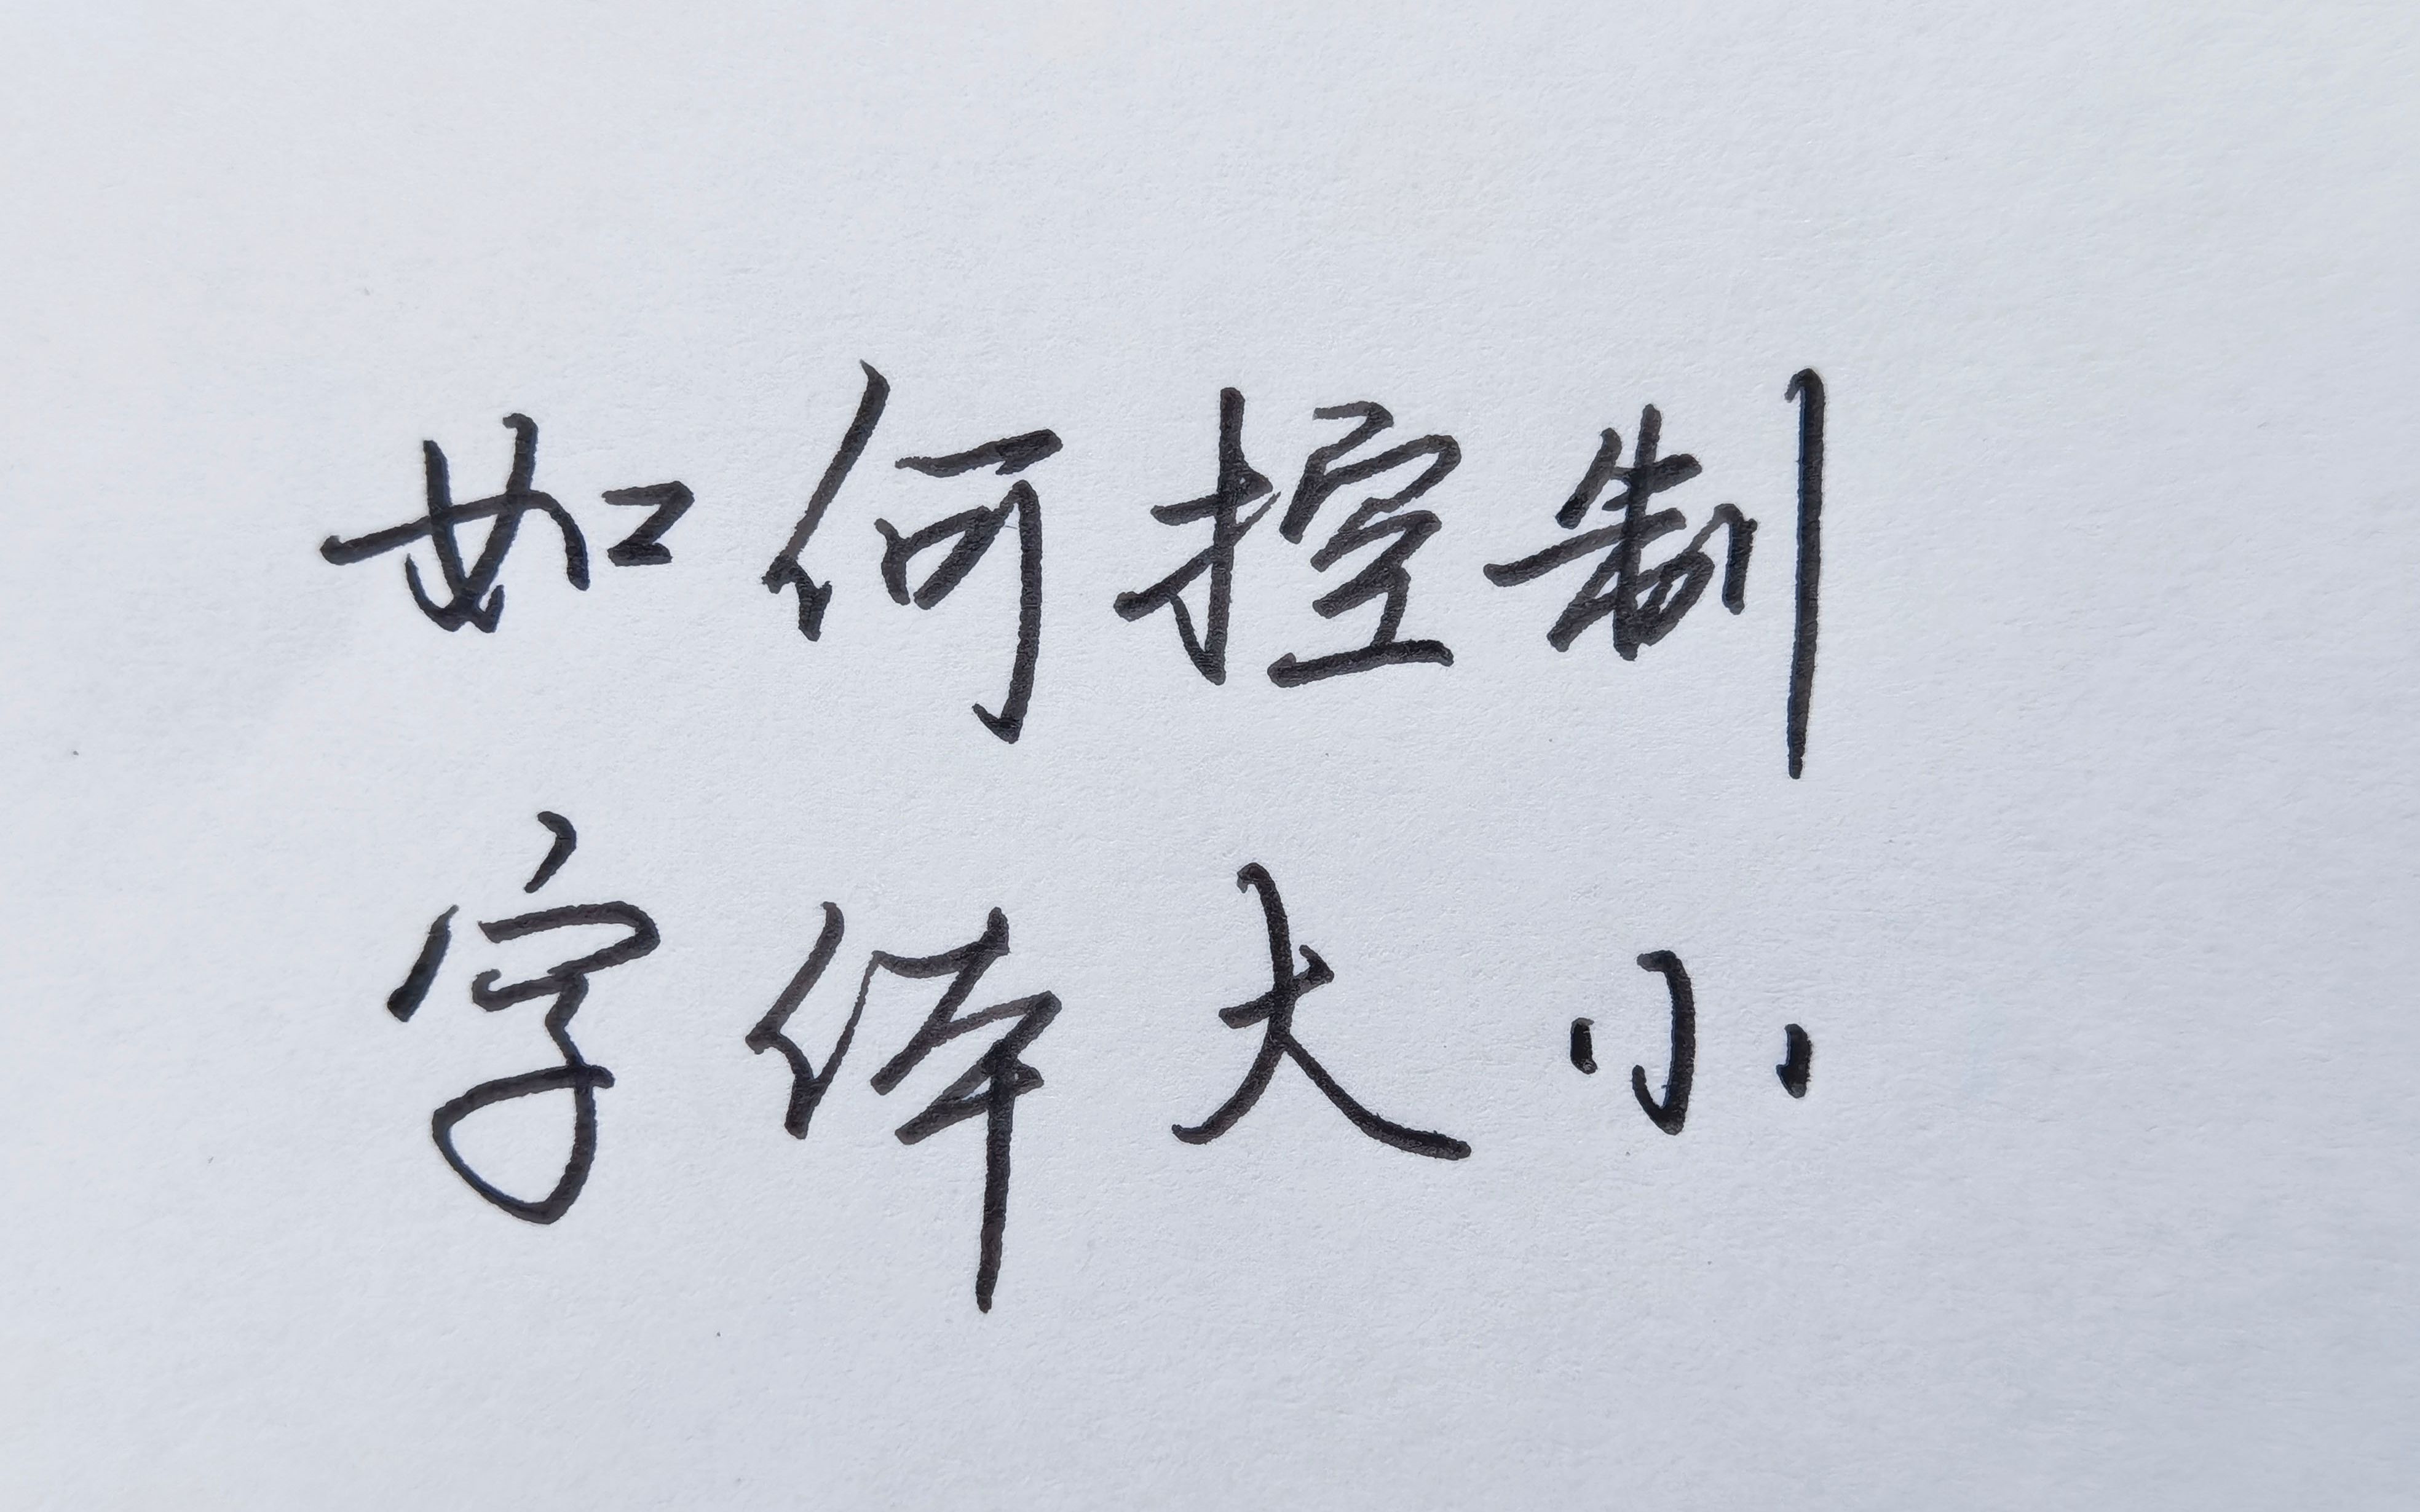 如何控制
字体大小